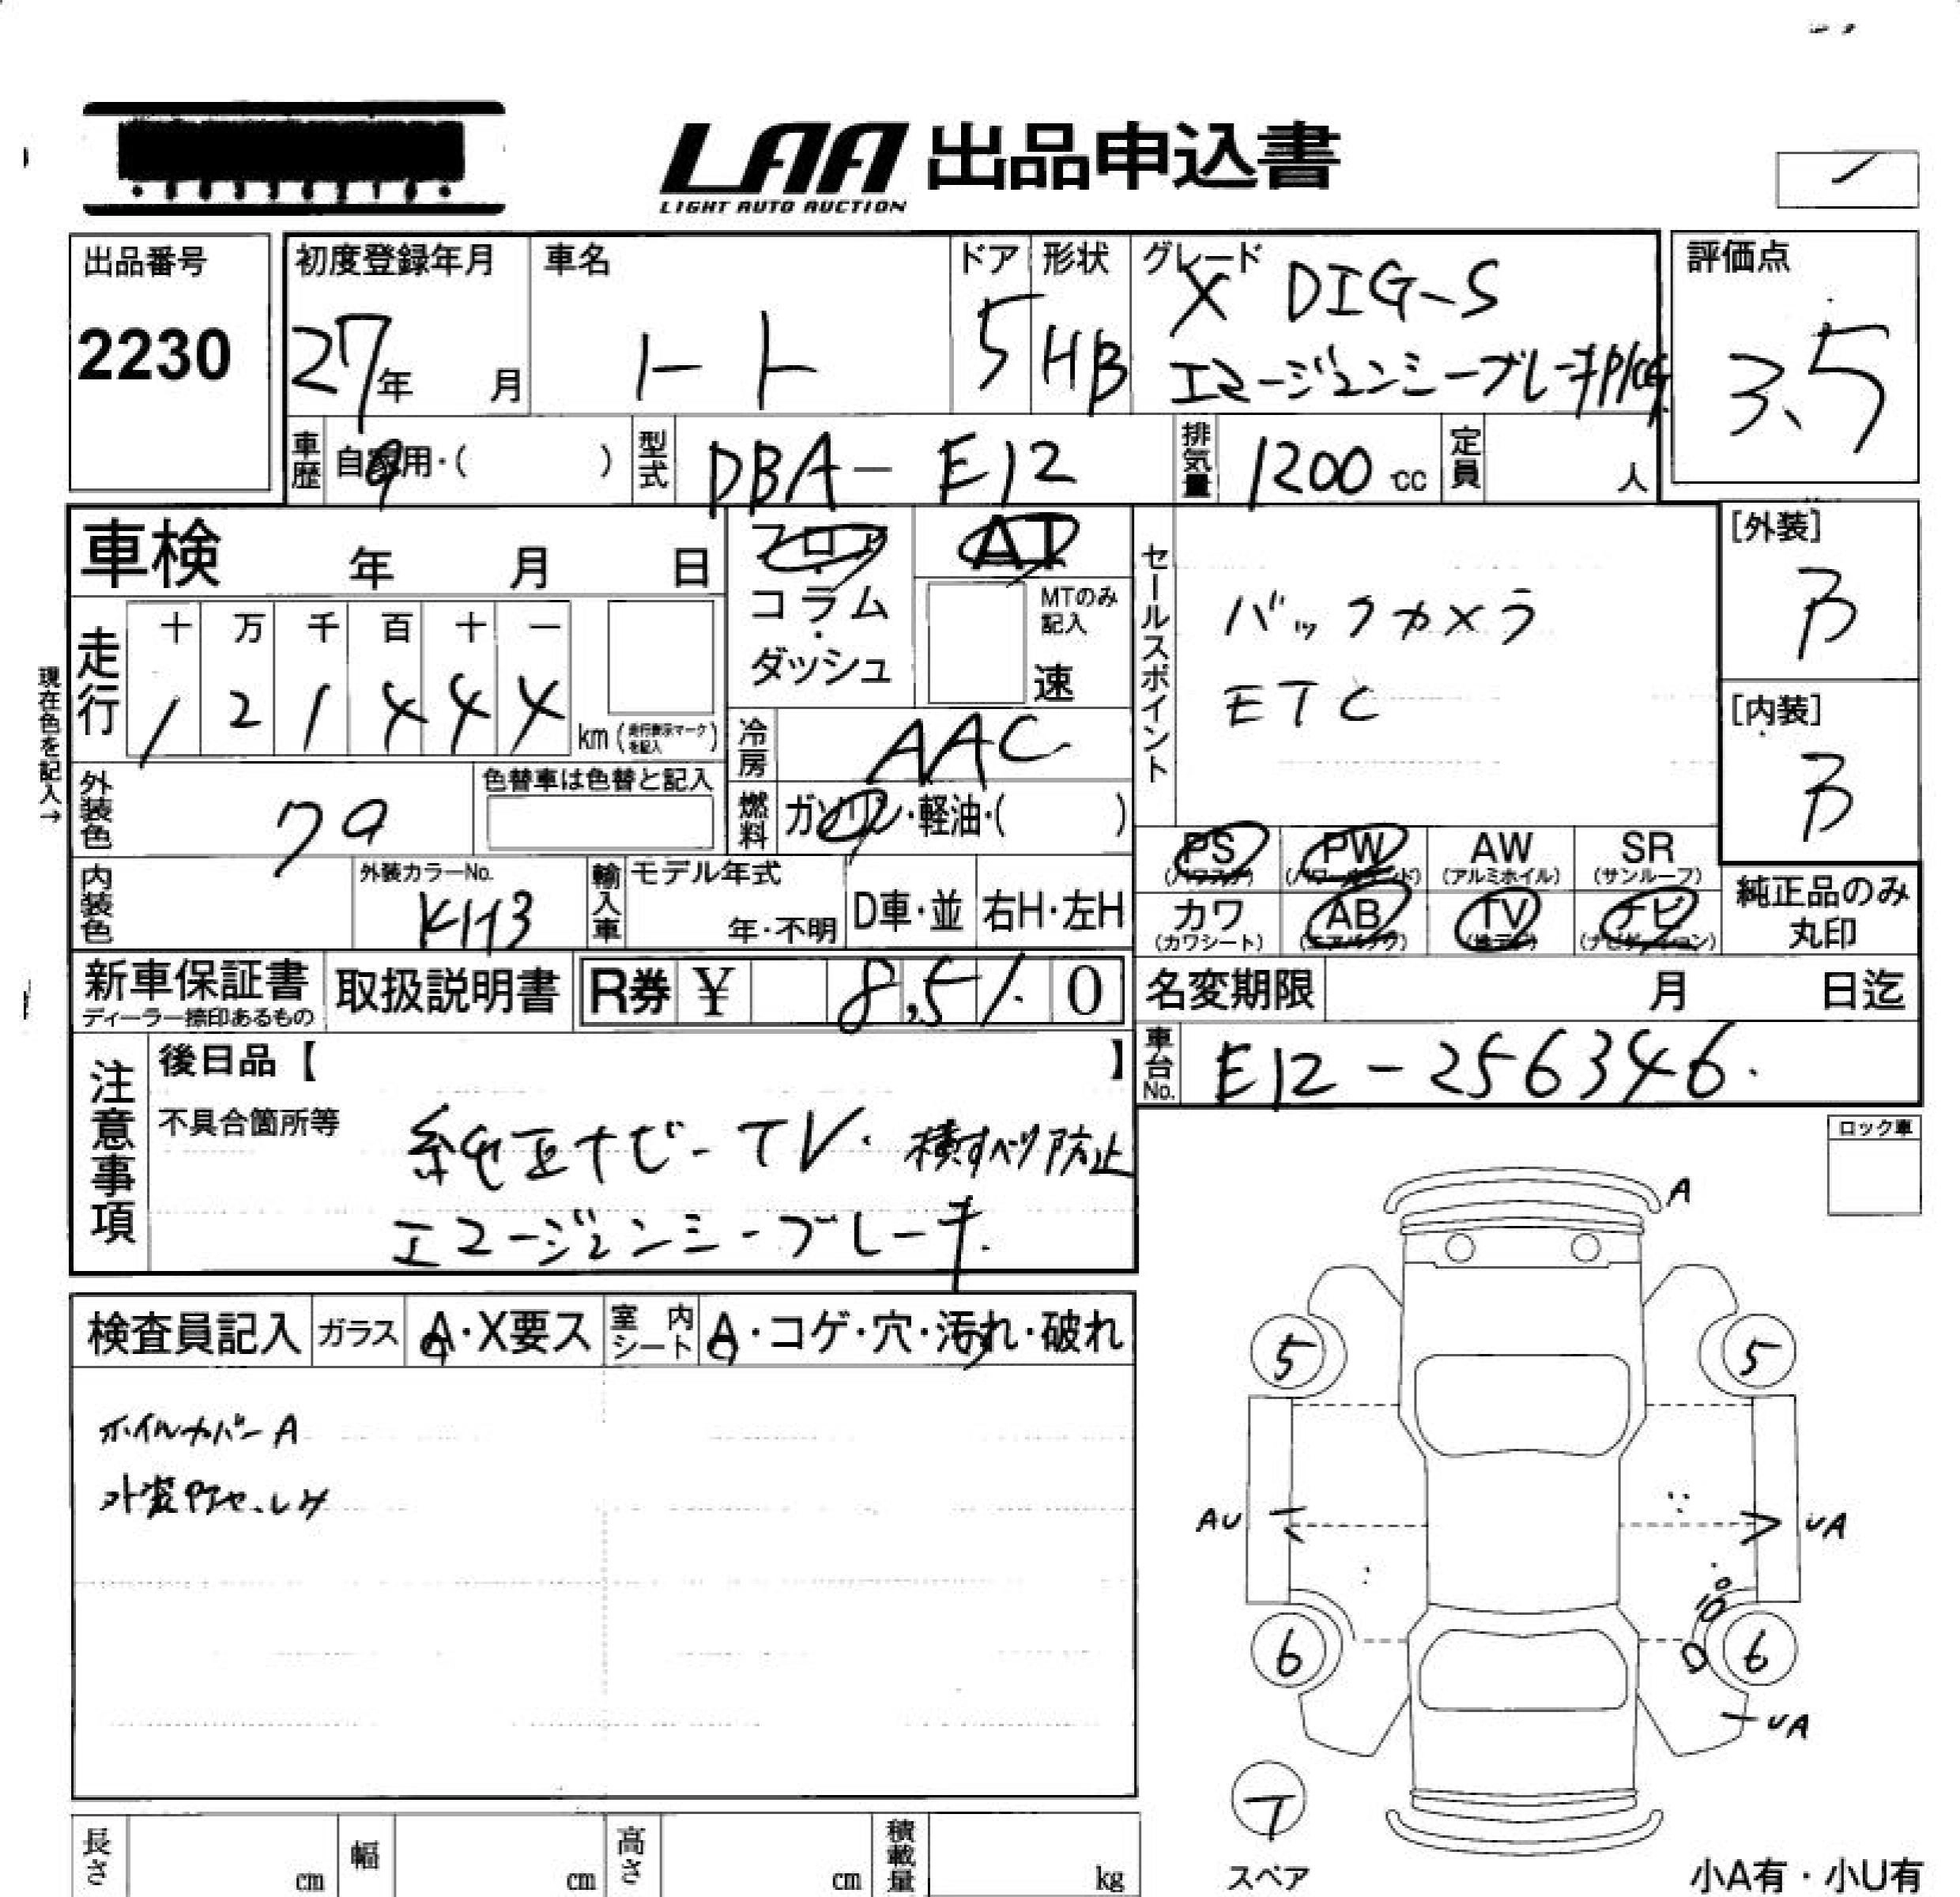 LAA 出品申込書
LIGHT AUTO AUCTION
出品番号
2230
初度登録年月
27年 月
車名
ノート
ドア
5
形状
HB
グレード
X DIG-S
エマージェンシーブレーキPKG
評価点
3.5
車歴 自家用・( )
型式 DBA-E12
排気量 1200 cc
定員 人
車検 年 月 日
フロア
・
コラム
・
ダッシュ
AT
MTのみ
記入
速
セールスポイント
バックカメラ
ETC
[外装]
B
[内装]
B
現在色を記入→
走行
十 万 千 百 十 一
1 2 1 4 4 4 km (走行表示マークを記入)
冷房 AAC
外装色
色替車は色替と記入
燃料 ガソリン・軽油・( )
内装色
外装カラーNo.
輸入車 モデル年式
年・不明
D車・並 右H・左H
PS
PW
(パワーウインド)
AW
(アルミホイル)
SR
(サンルーフ)
カワ
(カワシート)
AB
(エアバック)
TV
(地デジ)
ナビ
(ナビゲーション)
純正品のみ
丸印
新車保証書
ディーラー捺印あるもの
取扱説明書
R券 ¥ 8,510
名変期限 月 日迄
車台No. E12-256346.
注意事項
後日品【 】
不具合箇所等
純正ナビ-TV・横すべり防止
エマージェンシーブレーキ.
ロック車
検査員記入 ガラス A・X要ス 室内シート A・コゲ・穴・汚れ・破れ
ホイルカバーA
外装ヤケ、シミ
A
5 5
AU UA
6 6
UA
T
スペア
小A有・小U有
長さ cm 幅 cm 高さ cm 積載量 kg